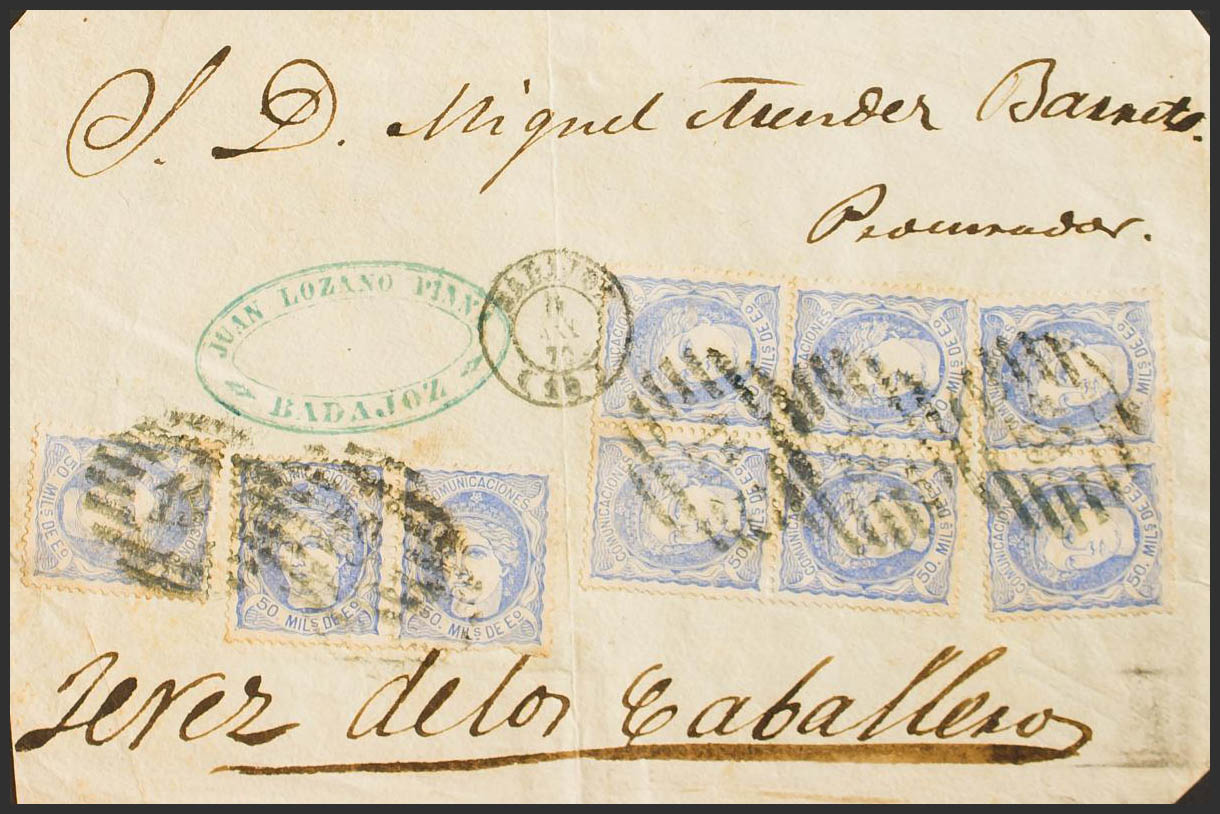 S. D. Miguel Mender Barreto.
Procurador.
JUAN LOZANO
BADAJOZ
BADAJOZ
COMUNICACIONES
50 MILS DE Eo
COMUNICACIONES
50. MILS DE Eo
COMUNICACIONES
50. MILS DE Eo
50 MILS DE Eo
COMUNICACIONES
50 MILS DE Eo
COMUNICACIONES
50. MILS DE Eo
COMUNICACIONES
50. MILS DE Eo
COMUNICACIONES
50. MILS DE Eo
COMUNICACIONES
50. MILS DE Eo
Jerez de los Caballeros